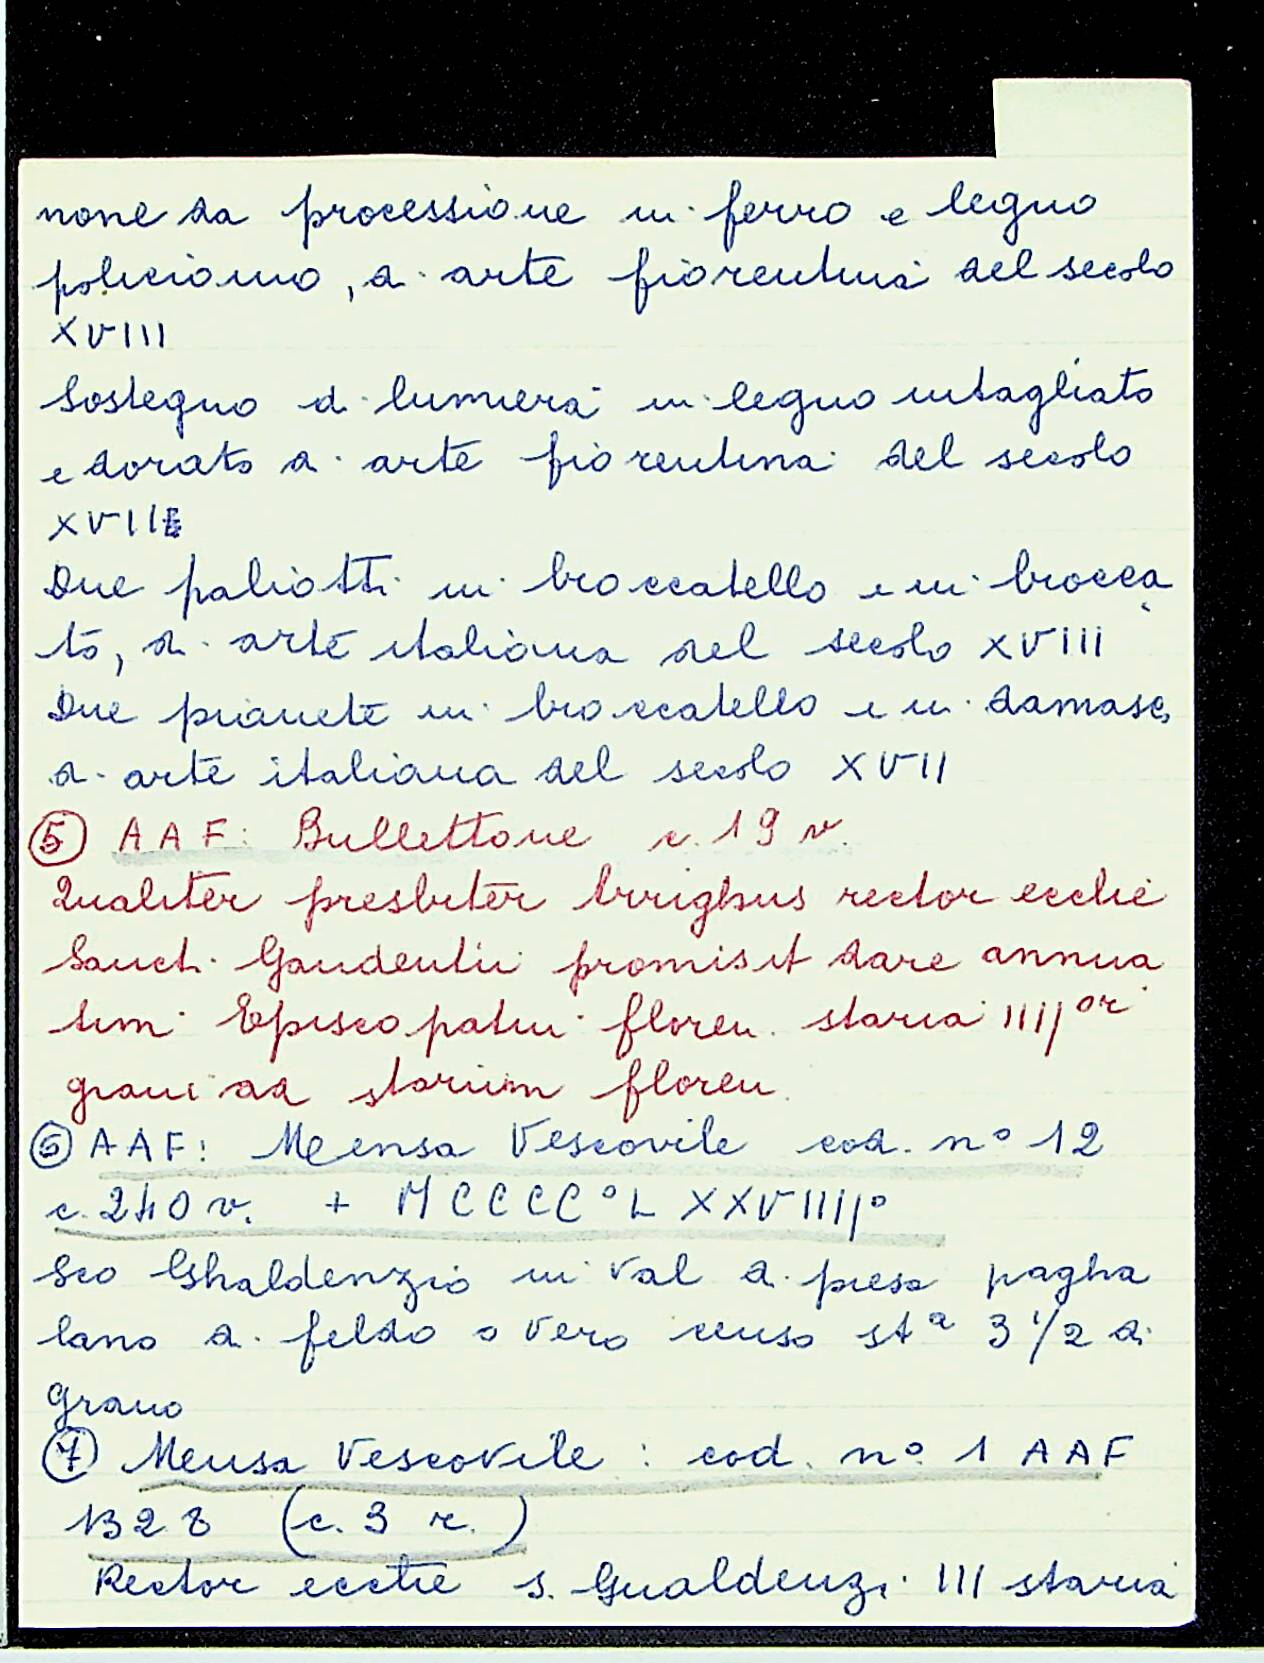 none da processione in ferro e legno
policromo, di arte fiorentina del secolo
XVIII
Sostegno di lumiera in legno intagliato
e dorato di arte fiorentina del secolo
XVII
Due paliotti in broccatello e in brocca
to, di arte italiana del secolo XVIII
Due pianete in broccatello e in damasc,
di arte italiana del secolo XVII
5 AAF: Bullettone c. 19 v.
Qualiter presbiter Arrighus rector ecclie
Sancti Gaudentii promisit dare annua
tim Episcopatui floren. staria IIII or
grani ad starium floren.
6 AAF: Mensa Vescovile cod. n° 12
c. 240 v. + MCCCC°LXXVIIII°
Sco Ghaldenzio in val di pesa pagha
lano di feldo o vero censo st a 3 1/2 di
grano
7 Mensa Vescovile: cod. n° 1 AAF
1328 (c. 3 r.)
Rector ecclie s. Gualdenzi III staria